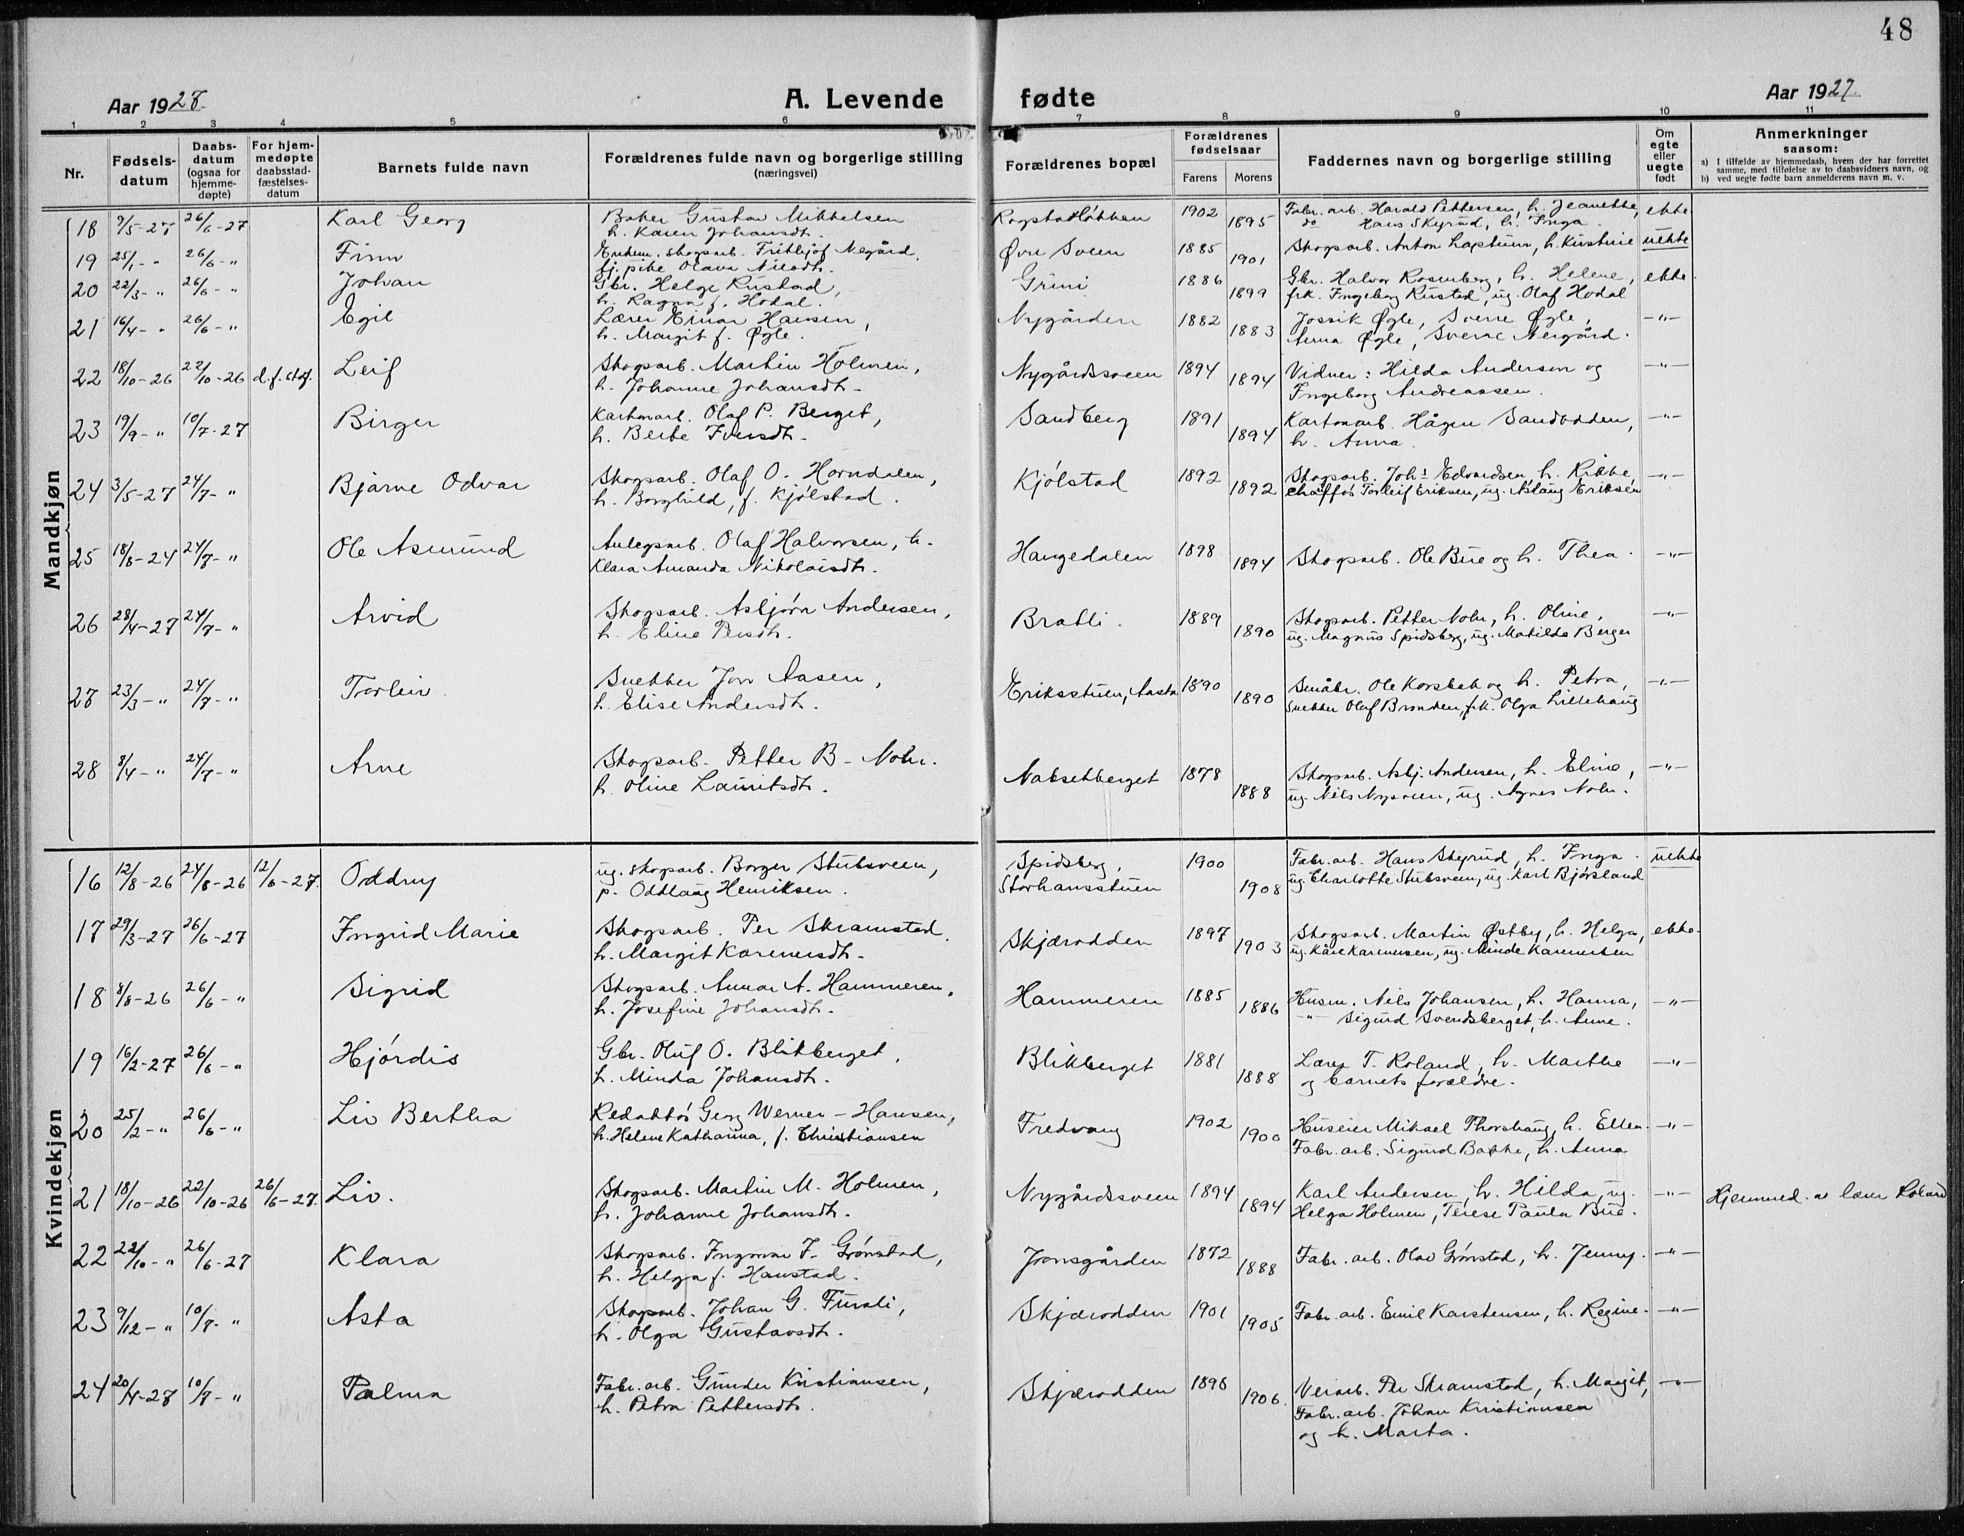 48
Aar 1927.
A. Levende fødte
Aar 1927.
1 2 3 4 5 6 7 8 9 10 11
Nr.
Fødsels-
datum
Daabs-
datum
(ogsaa for
hjemme-
døpte)
For hjem-
medøpte
daabsstad-
fæstelses-
datum
Barnets fulde navn
Forældrenes fulde navn og borgerlige stilling
(næringsvei)
Forældrenes bopæl
Forældrenes
fødselsaar
Farens Morens
Faddernes navn og borgerlige stilling
Om
egte
eller
uegte
født
Anmerkninger
saasom:
a) I tilfælde av hjemmedaab, hvem der har forrettet
samme, med tilføielse av to daabsvidners navn, og
b) ved uegte fødte barn anmelderens navn m. v.
Mandkjøn
18 9/5-27 26/6-27 Karl Georg Baker Gustav Mikkelsen Rogstadløkken 1902 Fabr. arb. Harald Pettersen, h. Jeanette, ekte
h. Karen Johansdt. 1895 do Hans Skyrud, h. Inga
19 25/1-" 26/6-" Finn Enkem. skogsarb. Frithjof Negård, Øvre Sveen 1885 Skogsarb. Anton Løpstuen, h. Kristine uekte
tj. pike Olava Nilsdt. 1901
20 22/3-" 26/6-" Johan Gbr. Helge Rustad, Grini 1886 Gbr. Halvor Rosenberg, h. Helene, ekte
h. Ragna f. Hodal. 1899 frk. Ingeborg Rustad, ug. Olaf Hodal
21 16/4-" 26/6-" Egil Lærer Einar Hansen, Nygården 1882 Jossik Øgle, Sverre Øgle, -"-
h. Margit f. Øgle. 1883 Anna Øgle, Sverre Nergård.
22 18/10-26 22/10-26 d.f. staf. Leif Skogsarb. Martin Holmen, Nygårdsveen 1894 Vidner: Hilda Andersen og -"-
h. Johanne Johansdt. 1894 Ingeborg Andreassen.
23 19/9-" 10/7-27 Birger Kartonarb. Olaf P. Berget, Sandberg 1891 Kartonarb. Hågen Sandodden, -"-
h. Berte Iversdt. 1894 h. Anna.
24 3/5-27 24/7-" Bjarne Odvar Skogsarb. Olaf O. Horndalen, Kjølstad 1892 Skogsarb. Johs Edvardsen, h. Rikke, -"-
h. Borghild, f. Kjølstad. 1892 chaffør Torleif Eriksen, ug. Aslaug Eriksen
25 18/8-24 24/7-" Ole Asmund Anlegsarb. Olaf Halvorsen, h. Haugedalen 1898 Skogsarb. Ole Bue og h. Thea. -"-
Klara Amanda Nikolaisdt. 1894
26 28/4-27 24/7-" Arvid Skogsarb. Asbjørn Andersen, Bratli. 1889 Skogsarb. Petter Nohr, h. Oline, -"-
h. Eline Persdt. 1890 ug. Magnus Spidsberg, ug. Matilde Berger
27 23/3-" 24/7-" Torleiv Snekker Jon Aasen, Eriksstuen, Aasta 1890 Småbr. Ole Korsbak og h. Petra, -"-
h. Elise Andersdt. 1890 Snekker Olaf Bronken, frk. Olga Lillehaug
28 8/4-" 24/7-" Arne Skogsarb. Petter B. Nohr. Naksetberget 1878 Skogsarb. Asbj. Andersen, h. Eline, -"-
h. Oline Lauritsdt. 1888 ug. Nils Nysveen, ug. Agnes Nohr.
Kvindekjøn
16 12/8-26 24/8-26 12/6-27. Oddny ug. skogsarb. Borger Stubsveen, Spidsberg, 1900 Fabr. arb. Hans Skyrud, h. Inga. uekte
p. Oddlaug Henriksen. Storhansstuen 1908 ug. Charlotte Stubsveen, ug. Karl Bjørsland
17 29/3-27 26/6-27 Ingrid Marie Skogsarb. Per Skramstad, Skjærodden 1897 Skogsarb. Martin Østby, h. Helga, ekte.
h. Margit Karenersdt. 1903 ug. Kåre Karenusen, ug. Minde Karenusen
18 8/8-26 26/6-" Sigrid Skogsarb. Annar A. Hammeren, Hammeren 1885 Husm. Nils Johansen, h. Hanna, -"-
h. Josefine Johansdt. 1886 -"- Sigurd Svendsberget, h. Anne.
19 16/2-27 26/6-" Hjørdis Gbr. Oluf O. Blikberget, Blikberget 1881 Lærer T. Roland, h. Marthe -"-
h. Minda Johansdt. 1888 og barnets forældre.
20 25/2-" 26/6-" Liv Bertha Redaktør Georg Werner-Hansen, Fredvang 1902 Huseier Mikael Thorshaug, h. Ellen. -"-
h. Helene Katharina, f. Christiansen 1900 Fabr. arb. Sigurd Bakke, h. Anna
21 18/10-26 22/10-26 26/6-27. Liv. Skogsarb. Martin M. Holmen, Nygårdsveen 1894 Karl Andersen, h. Hilda, ug. -"- Hjemmed. av lærer Roland
h. Johanne Johansdt. 1894 Helga Holmen, Terese Paula Bue.
22 22/10-" 26/6-27 Klara Skogsarb. Ingvar I. Grønstad, Jonsgården 1872 Fabr. arb. Olav Grønstad, h. Jenny. -"-
h. Helga f. Hanstad. 1888
23 9/12-" 10/7-" Asta Skogsarb. Johan G. Furali, Skjærodden 1901 Fabr. arb. Emil Karstensen, h. Regine. -"-
h. Olga Gustavsdt. 1905
24 20/4-27 10/7-" Palma Fabr. arb. Gunder Kristiansen, Skjærodden 1898 Veiarb. Per Skramstad, h. Margit, -"-
h. Petra Pettersdt. 1906. Fabr. arb. Johan Kristiansen
og h. Marta.